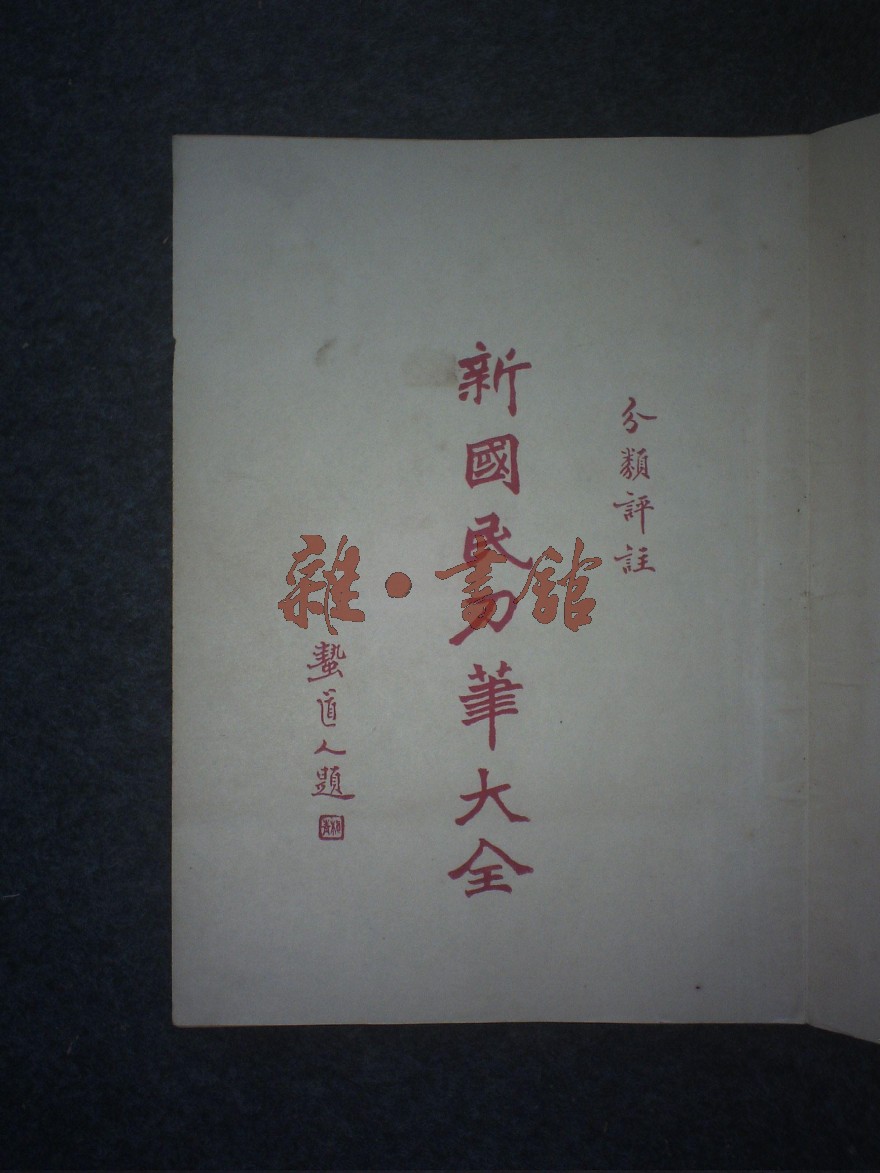 分類評註
新國民刀筆大全
蟄道人題
雜·書館